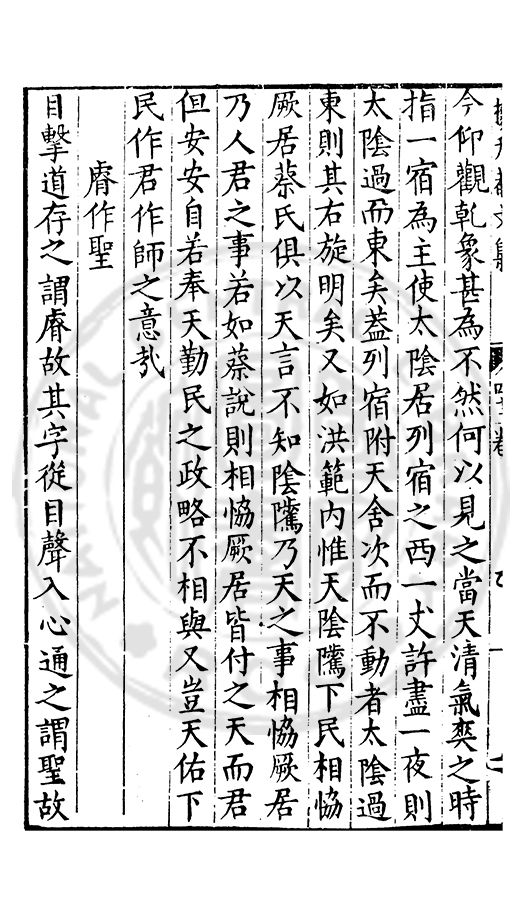 今仰觀乾象甚為不然何以見之當天清氣爽之時
指一宿為主使太陰居列宿之西一丈許盡一夜則
太陰過而東矣葢列宿附天舍次而不動者太陰過
東則其右旋明矣又如洪範內惟天陰隲下民相恊
厥居蔡氏俱以天言不知陰隲乃天之事相恊厥居
乃人君之事若如蔡說則相恊厥居皆付之天而君
但安安自若奉天勤民之政略不相與又豈天佑下
民作君作師之意㢤
睿作聖
目擊道存之謂睿故其字從目聲入心通之謂聖故